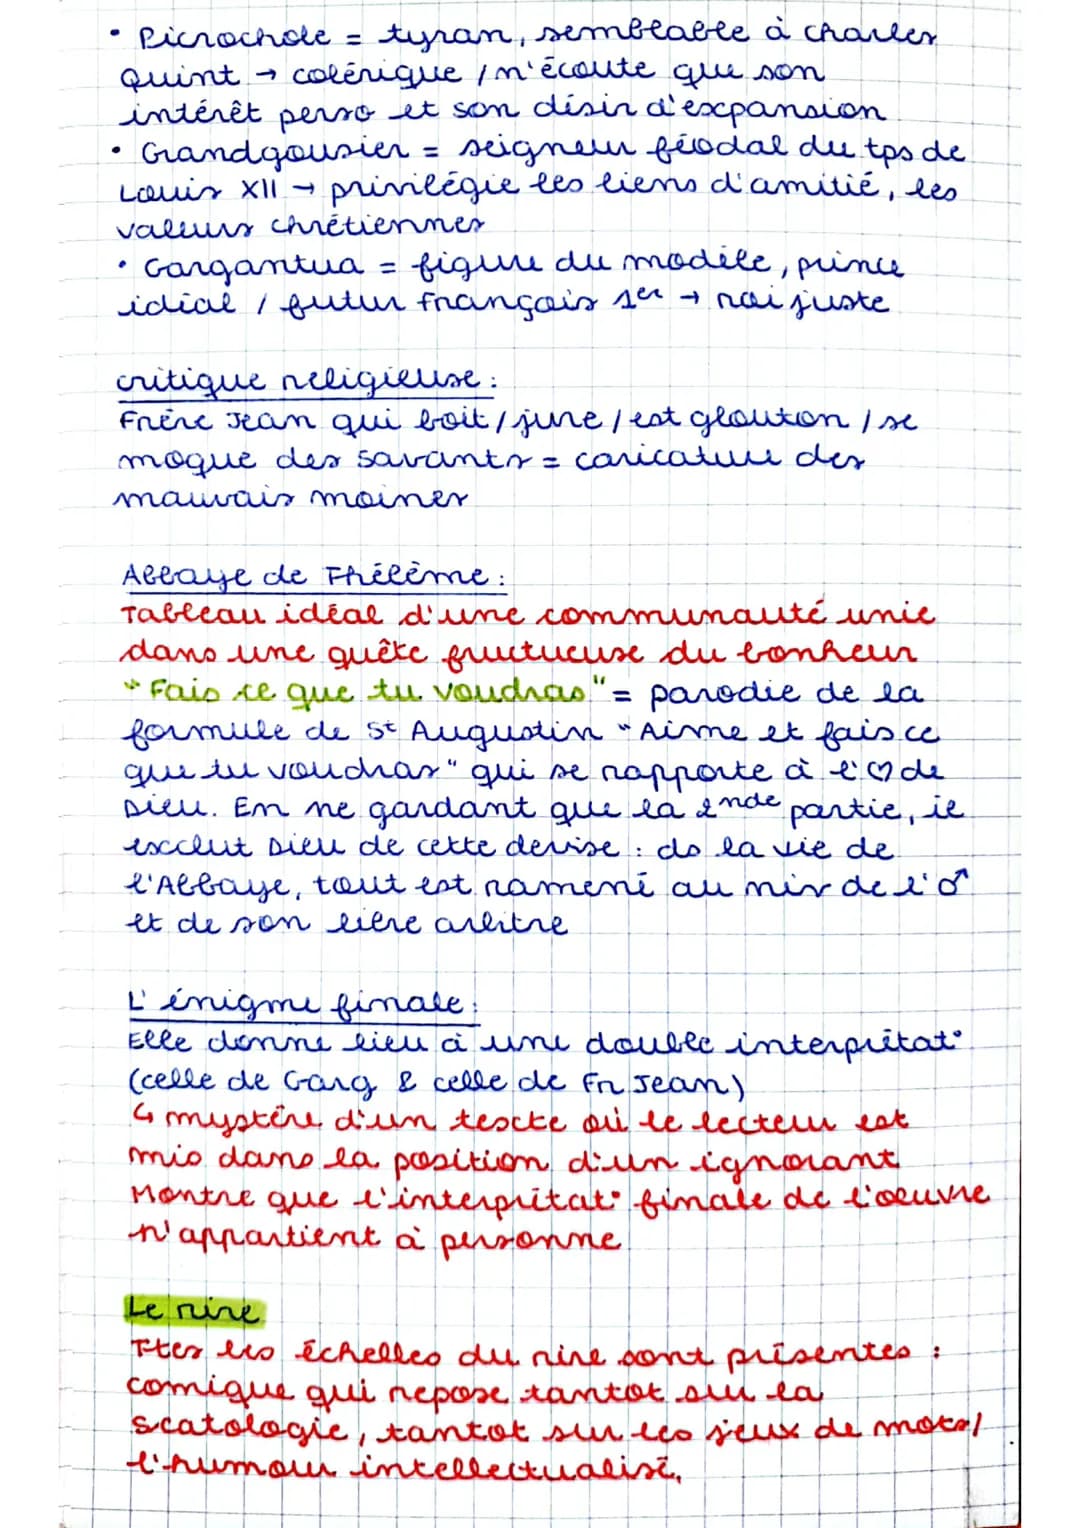 • Picrochole = tyran, semblable à Charles
Quint → colérique / n'écoute que son
intérêt perso et son désir d'expansion
• Grandgousier = seigneur féodal du tps de
Louis XII → privilégie les liens d'amitié, les
valeurs chrétiennes
• Gargantua = figure du modèle, prince
idéal / futur François 1er → roi juste
critique religieuse :
Frère Jean qui boit / jure / est glouton / se
moque des savants = caricature des
mauvais moines
Abbaye de Thélème :
Tableau idéal d'une communauté unie
dans une quête fructueuse du bonheur
"Fais ce que tu voudras" = parodie de la
formule de St Augustin "Aime et fais ce
que tu voudras" qui se rapporte à l'♡ de
Dieu. En ne gardant que la 2nde partie, il
exclut Dieu de cette devise : ds la vie de
l'Abbaye, tout est ramené au niv de l'♂
et de son libre arbitre
L'énigme finale :
Elle donne lieu à une double interprétat°
(celle de Garg & celle de Fr Jean)
↳ mystère d'un texte où le lecteur est
mis dans la position d'un ignorant
Montre que l'interprétat° finale de l'oeuvre
n'appartient à personne
Le rire
Ttes les échelles du rire sont présentes :
comique qui repose tantot sur la
scatologie, tantot sur les jeux de mots/
l'humour intellectualisé.